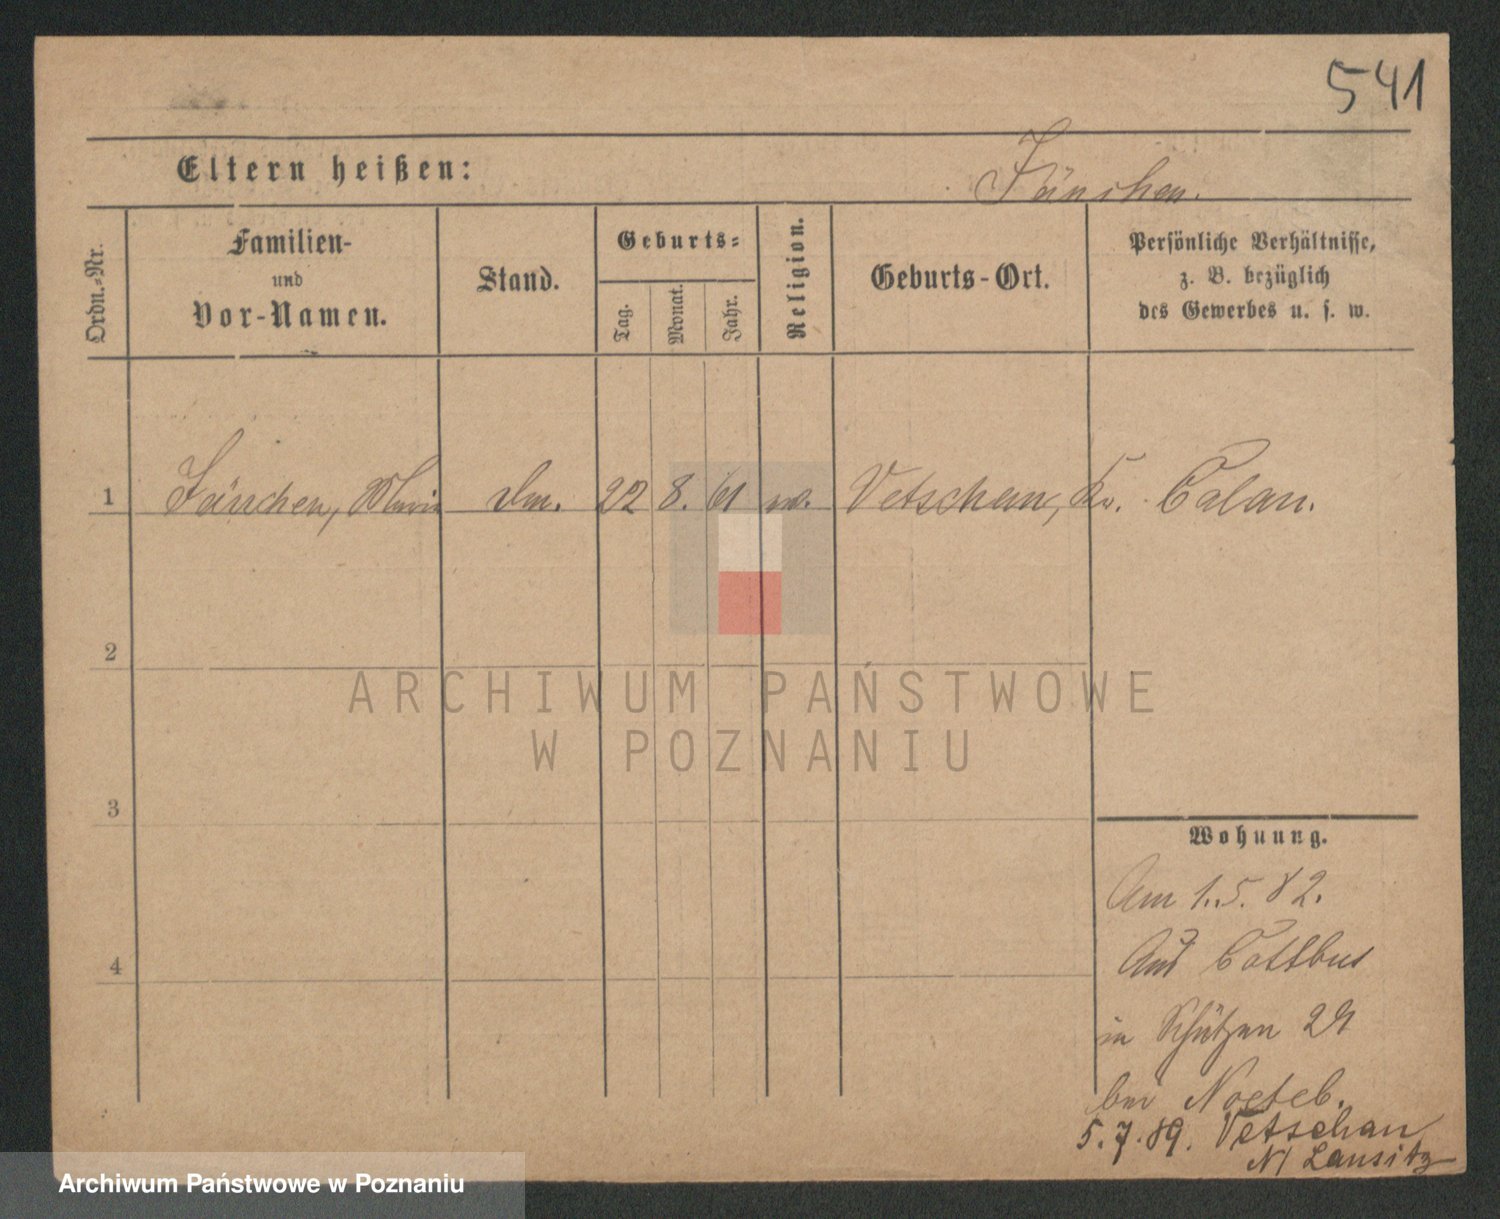 541
Eltern heißen:
Jänchen.
Ordn.-Nr.
Familien-
und
Vor-Namen.
Stand.
Geburts-
Tag.
Monat.
Jahr.
Religion.
Geburts-Ort.
Persönliche Verhältnisse,
z. B. bezüglich
des Gewerbes u. s. w.
1 Jänchen, 22 8. 61 Vetschau, Kr. Calau.
2
3
4
Wohnung.
Am 1.5. 82.
Aus Cottbus
in Schützen
bei
5.7.89. Vetschau
N/ Lausitz
ARCHIWUM PAŃSTWOWE
W POZNANIU
Archiwum Państwowe w Poznaniu